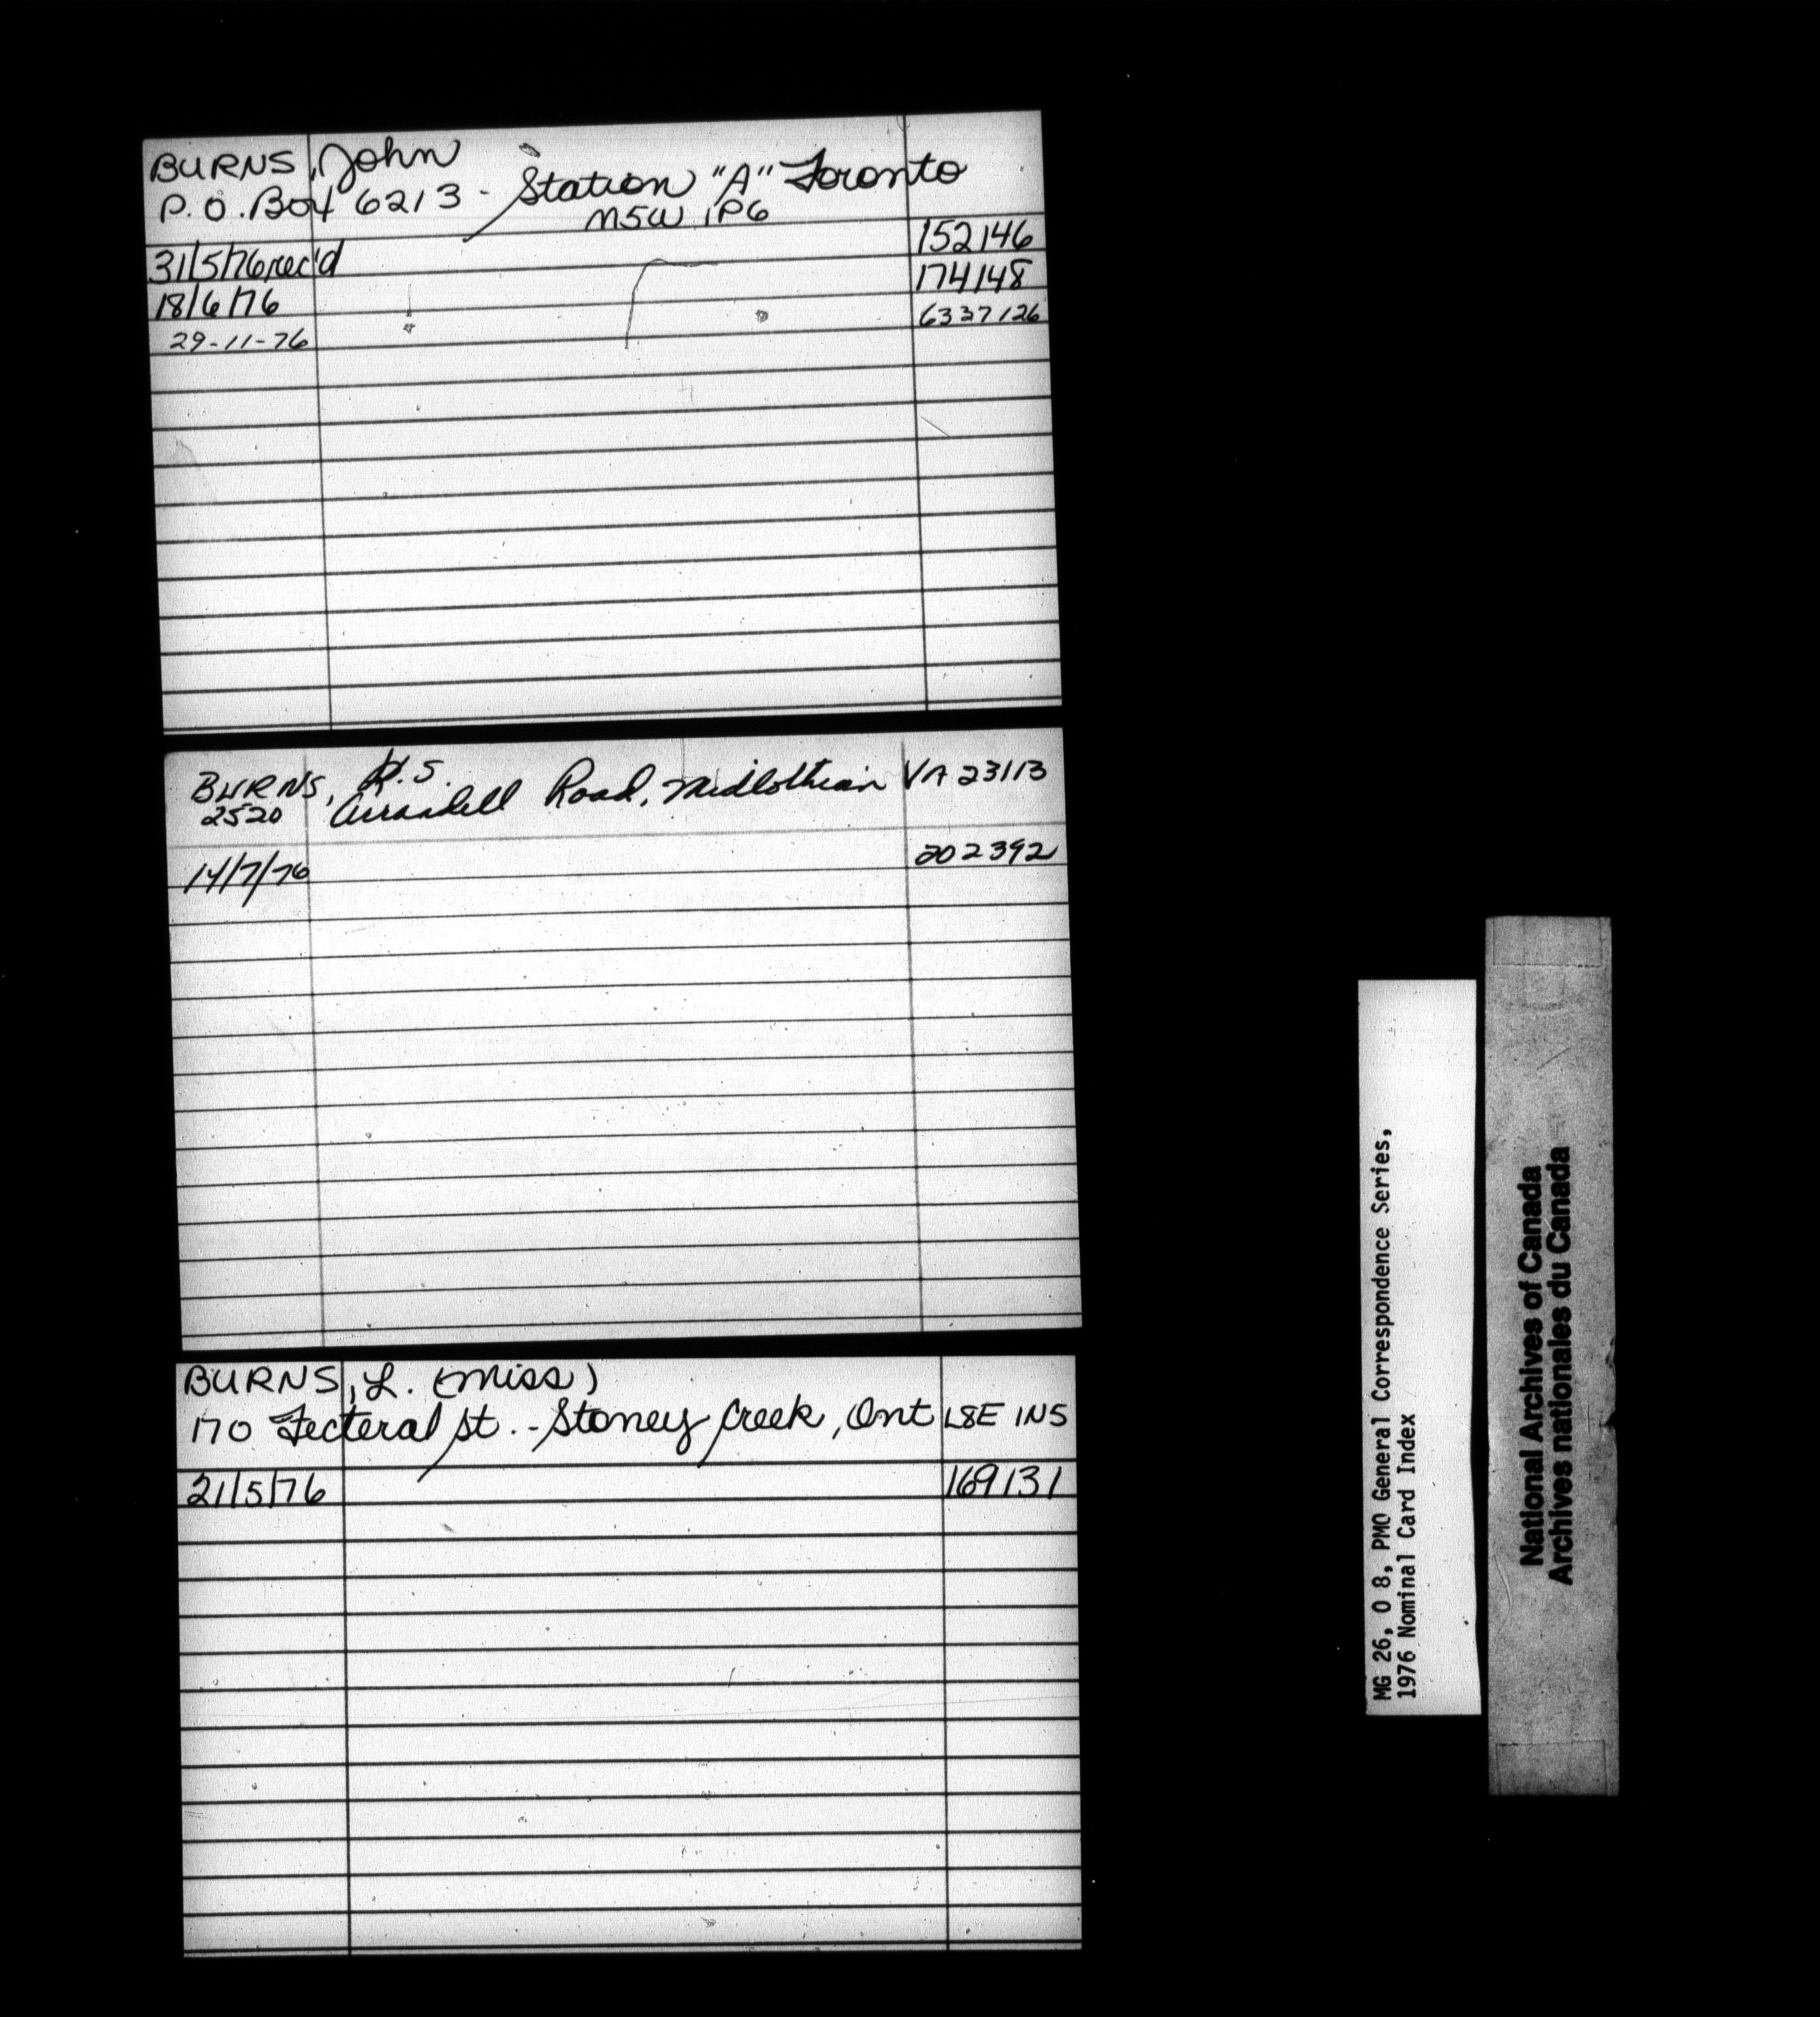 BURNS, John
P.O. Box 6213 - Station "A" Toronto
M5W 1P6
31/5/76 rec'd 152146
18/6/76 174148
29-11-76 6337126
BURNS, K.S.
2520 Road, Midlothian VA 23113
14/7/76 202392
BURNS, L. (Miss)
170 Fecteral St. - Stoney Creek, Ont L8E 1N5
21/5/76 169131
MG 26, O 8, PMO General Correspondence Series,
1976 Nominal Card Index
National Archives of Canada
Archives nationales du Canada